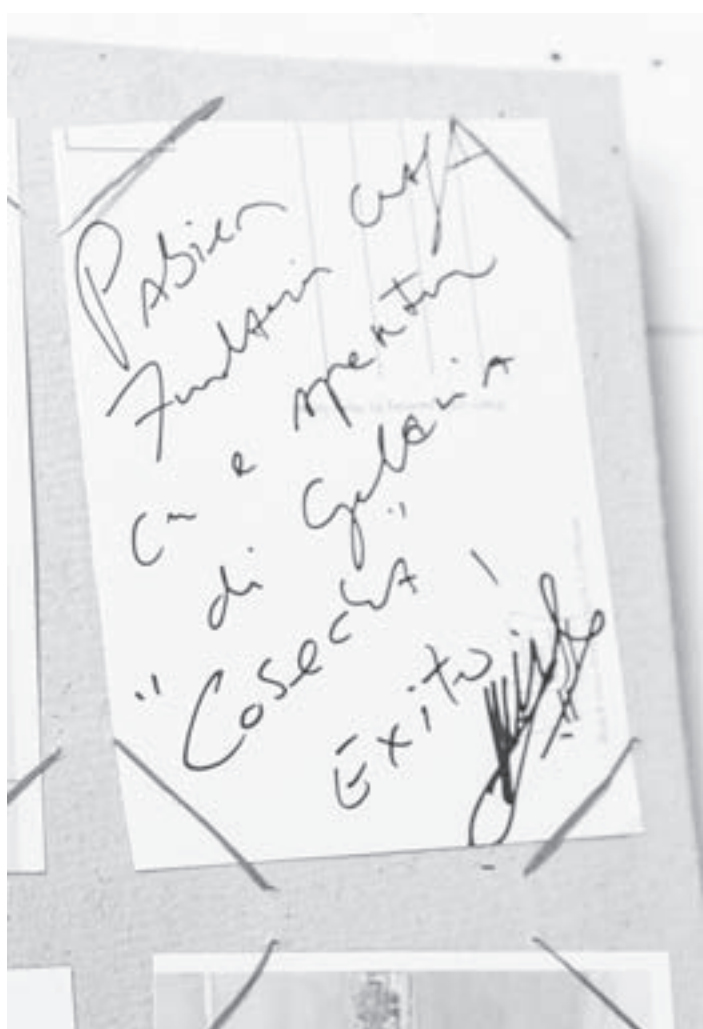 Pabien
Fundacion
cu e apertura
di Galeria
"Cosecha"
Exito